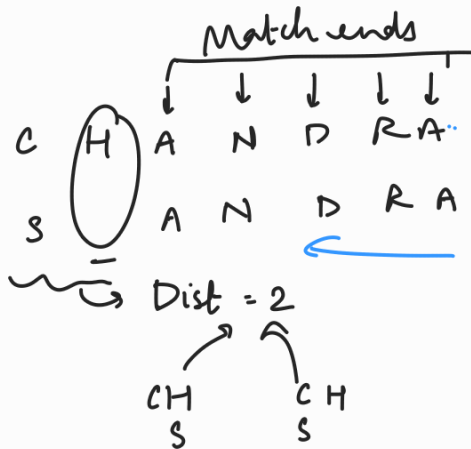 Match ends
C H A N D R A
S A N D R A
Dist = 2
CH C H
S S